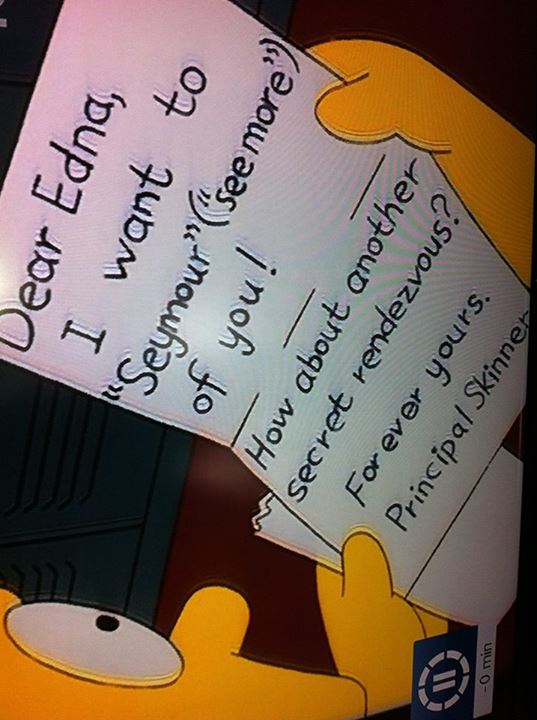 Dear Edna,
I want to
"Seymour" ("see more")
of you!
How about another
secret rendezvous?
Forever yours.
Principal Skinner
-0 min